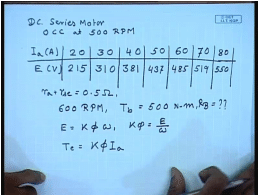 D.C. Series Motor
OCC at 500 RPM
Ia (A) 20 30 40 50 60 70 80
E (V) 215 310 381 437 485 519 550
ra+rse = 0.5Ω
600 RPM, Tb = 500 N-m, RB = ??
E = Kϕω, Kϕ = E/ω
Te = KϕIa